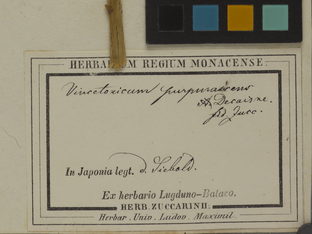 HERBARIUM REGIUM MONACENSE.
Vincetoxicum purpurascens
Decaisne.
fid. Zucc.
In Japonia legt. d. Siebold.
Ex herbario Lugduno-Batavo.
HERB. ZUCCARINII.
Herbar. Univ. Ludov. Maximil